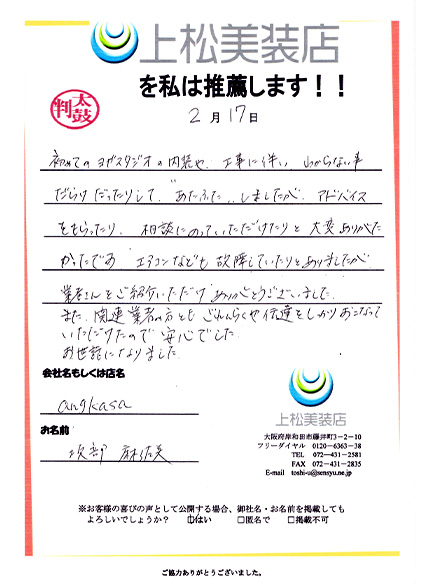 上松美装店
を私は推薦します!!
太鼓判
2月17日
初めてのヨガスタジオの内装や、工事に伴い、わからない事
だらけだったりして、"あたふた"しましたが、アドバイス
をもらったり、相談にのっていただけたりと大変ありがた
かったです エアコンなども故障していたりとありましたが
業者さんをご紹介いただけ ありがとうございました。
また、関連業者の方とも ごれんらくや伝達をしっかりおこなって
いただけたので 安心でした
お世話になりました
会社名もしくは店名
angkasa
お名前
麻佐美
上松美装店
大阪府岸和田市藤井町3-2-10
フリーダイヤル 0120-6363-38
TEL 072-431-2581
FAX 072-431-2835
E-mail toshi-u@sensyu.ne.jp
※お客様の喜びの声として公開する場合、御社名・お名前を掲載しても
よろしいでしょうか? ☑はい □匿名で □掲載不可
ご協力ありがとうございました。